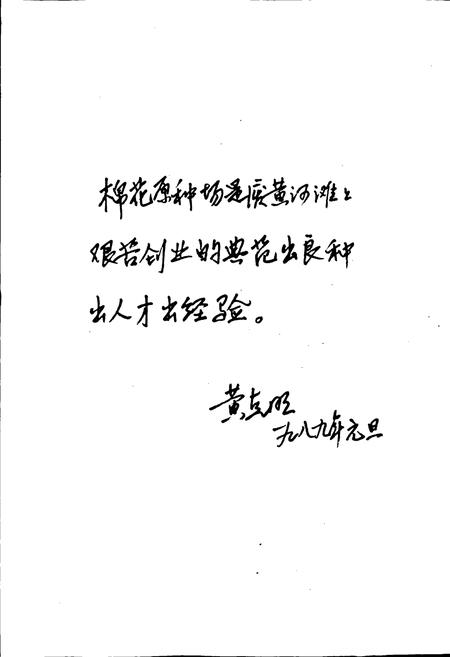 棉花原种场是废黄河滩上
艰苦创业的典范出良种
出人才出经验。
黄克明
一九八九年元旦